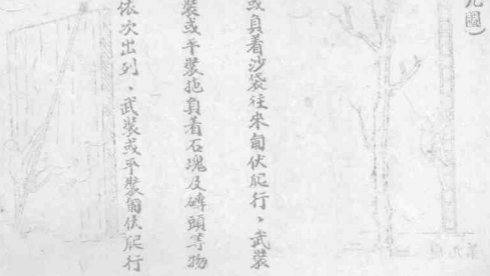 九圖）
或負着沙袋往來匍伏爬行，武裝
裝或平裝拖負着石塊及磚頭等物
依次出列，武裝或平裝匍伏爬行